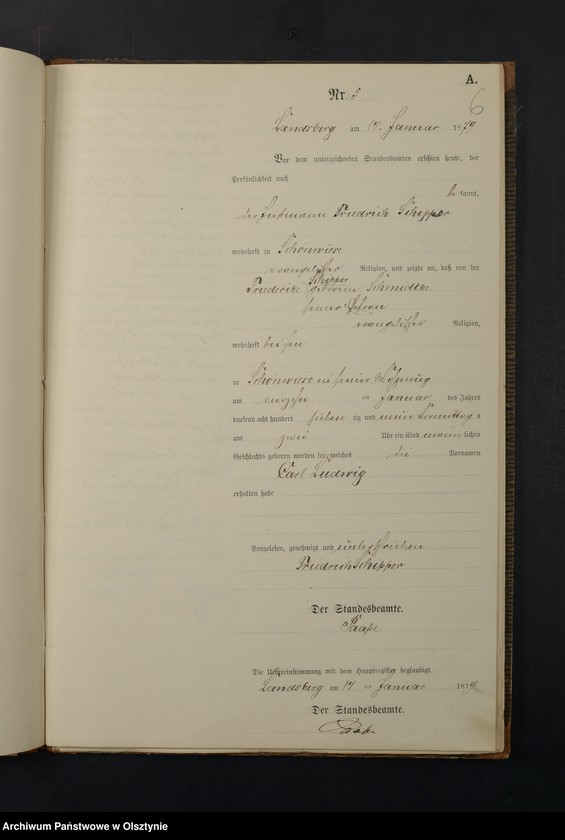 A.
Nr. 5
6
Landsberg am 14. Januar 1879
Vor dem unterzeichneten Standesbeamten erschien heute, der
Persönlichkeit nach
be kannt,
der Friedrich Schipper
wohnhaft zu Schönwiese
evangelischer Religion, und zeigte an, daß von der
Schipper
Friederike geborenen
seiner Ehefrau
evangelischer Religion,
wohnhaft bei ihm
zu Schönwiese in seiner Wohnung
am ten Januar des Jahres
tausend acht hundert sieben zig und neun Vormittag s
um zwei Uhr ein Kind männ lichen
Geschlechts geboren worden sei, welches die Vornamen
Carl Ludwig
erhalten habe
Vorgelesen, genehmigt und unterschrieben
Friedrich Schipper
Der Standesbeamte.
Die Uebereinstimmung mit dem Hauptregister beglaubigt.
Landsberg am 14 ten Januar 1879
Der Standesbeamte.
Archiwum Państwowe w Olsztynie